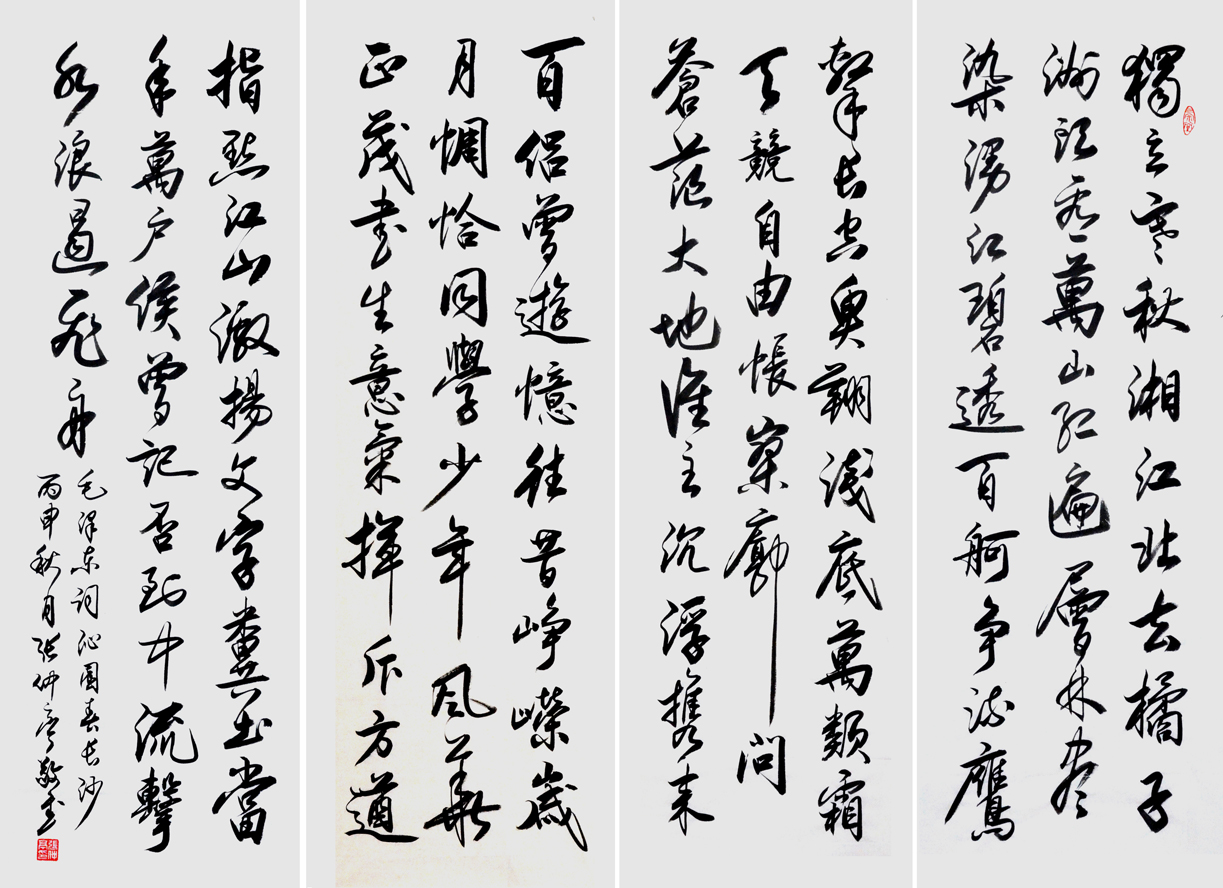 獨立寒秋湘江北去橘子
洲頭看萬山紅遍層林盡
染漫江碧透百舸争流鷹
擊長空魚翔淺底萬類霜
天競自由悵寥廓問
蒼茫大地誰主沉浮攜來
百侣曾遊憶往昔峥嶸歲
月惆恰同學少年風華
正茂書生意氣揮斥方遒
指點江山激揚文字糞土當
年萬户侯曾記否到中流擊
水浪遏飛舟
毛澤東詞沁園春長沙
丙申秋月張仲亭敬書